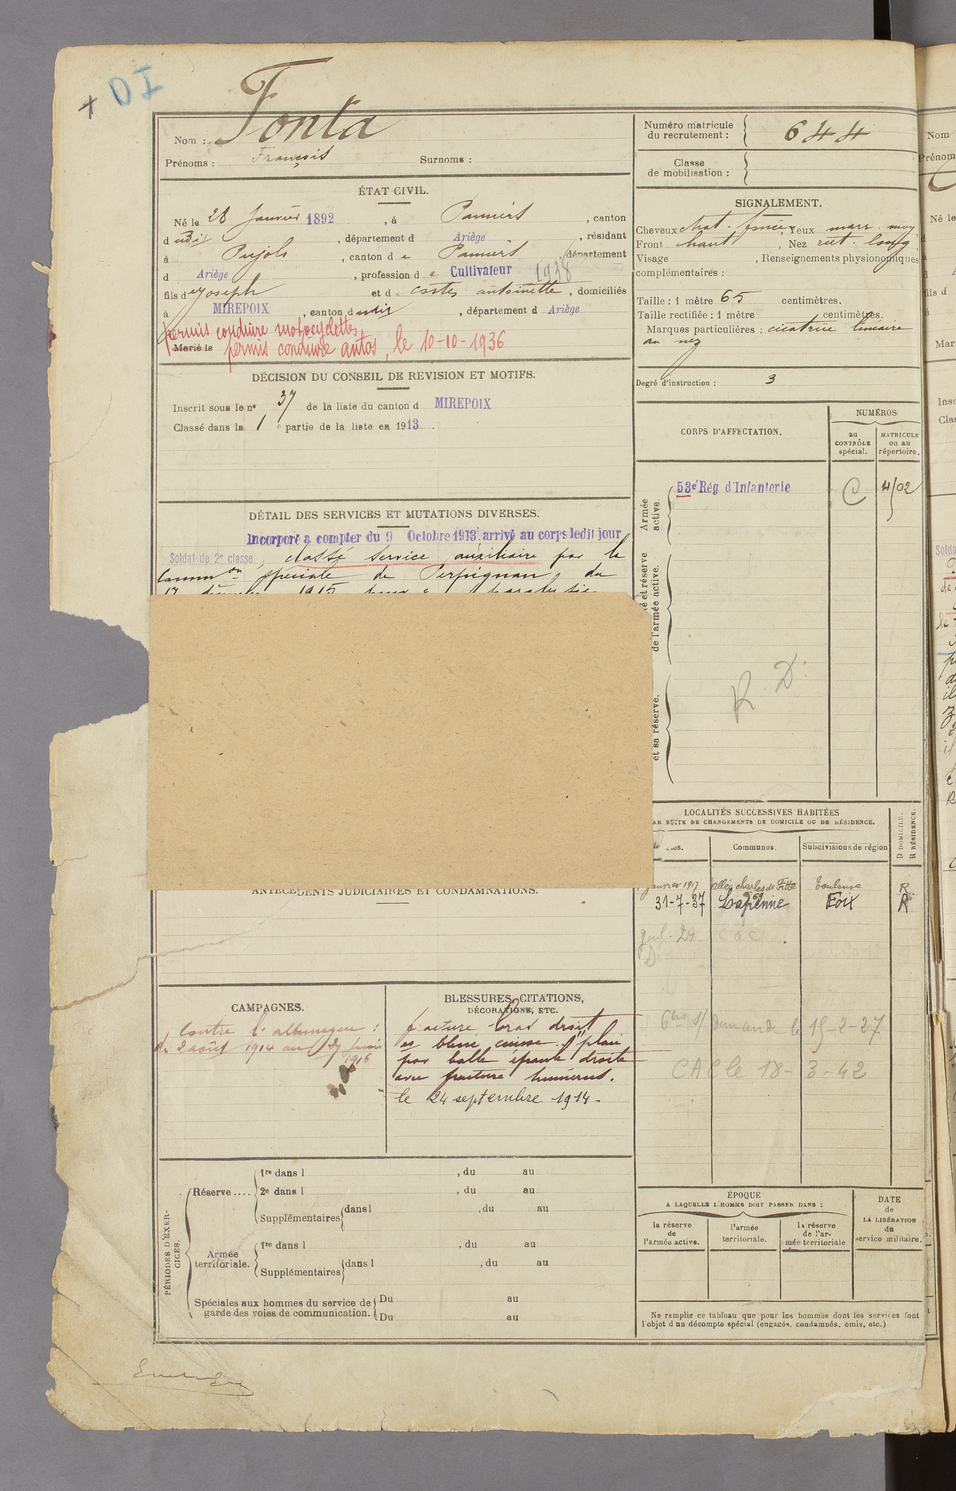 + DI
Nom : Fonta
Prénoms : François Surnoms :
ÉTAT CIVIL.
Né le 28 Janvier 1892, à Pamiers, canton
d udit, département d Ariège, résidant
à Pujols, canton d e Pamiers, département
d Ariège, profession d e Cultivateur 1938
fils de Joseph et d Costes antoinette, domiciliés
à MIREPOIX, canton dudit, département d Ariège
permis conduire motocyclettes
Marié le permis conduire autos, le 10-10-1936
DÉCISION DU CONSEIL DE REVISION ET MOTIFS.
Inscrit sous le nº 37 de la liste du canton d MIREPOIX
Classé dans la 1 e partie de la liste en 1913.
DÉTAIL DES SERVICES ET MUTATIONS DIVERSES.
Incorporé à compter du 9 Octobre 1913 arrivé au corps ledit jour
Soldat de 2e classe, classé service auxiliaire par la
Common spéciale de Perpignan, du
17 1915 pour paralysie
ANTÉCÉDENTS JUDICIAIRES ET CONDAMNATIONS.
CAMPAGNES.
Contre l'allemagne :
du 2 août 1914 au 27 juin
1916
BLESSURES, CITATIONS,
DÉCORATIONS, ETC.
fracture bras droit
et bless. cuisse plaie
par balle épaule droite
avec fracture humérus.
le 24 septembre 1914.
PÉRIODES D'EXERCICES.
Réserve.... 1re dans l , du au
2e dans l , du au
Supplémentaires dans l , du au
Armée territoriale. 1re dans l , du au
Supplémentaires dans l , du au
Spéciales aux hommes du service de garde des voies de communication. Du au
Du au
Numéro matricule
du recrutement : 644
Classe
de mobilisation :
SIGNALEMENT.
Cheveux chat. foncé Yeux marr. moy
Front haut, Nez rect. long
Visage , Renseignements physionomiques
complémentaires :
Taille : 1 mètre 65 centimètres.
Taille rectifiée : 1 mètre centimètres.
Marques particulières : cicatrice linéaire
au nez
Degré d'instruction : 3
CORPS D'AFFECTATION.
NUMÉROS
au CONTRÔLE spécial.
MATRICULE ou au répertoire.
Armée active.
53e Rég d'Infanterie C 4102
té et réserve de l'armée active.
R. D.
et sa réserve.
LOCALITÉS SUCCESSIVES HABITÉES
AR SUITE DE CHANGEMENTS DE DOMICILE OU DE RÉSIDENCE.
Communes. Subdivisions de région D DOMICILE. R RÉSIDENCE.
janvier 1917 allées charles de Fitte Toulouse R
31-7-37 Lapenne Foix R
demande le 15-2-27
CAC le 18-3-42
ÉPOQUE
A LAQUELLE L'HOMME DOIT PASSER DANS :
la réserve de l'armée active.
l'armée territoriale.
la réserve de l'armée territoriale
DATE de LA LIBÉRATION du service militaire.
Ne remplir ce tableau que pour les hommes dont les services font
l'objet d'un décompte spécial (engagés, condamnés, omis, etc.)